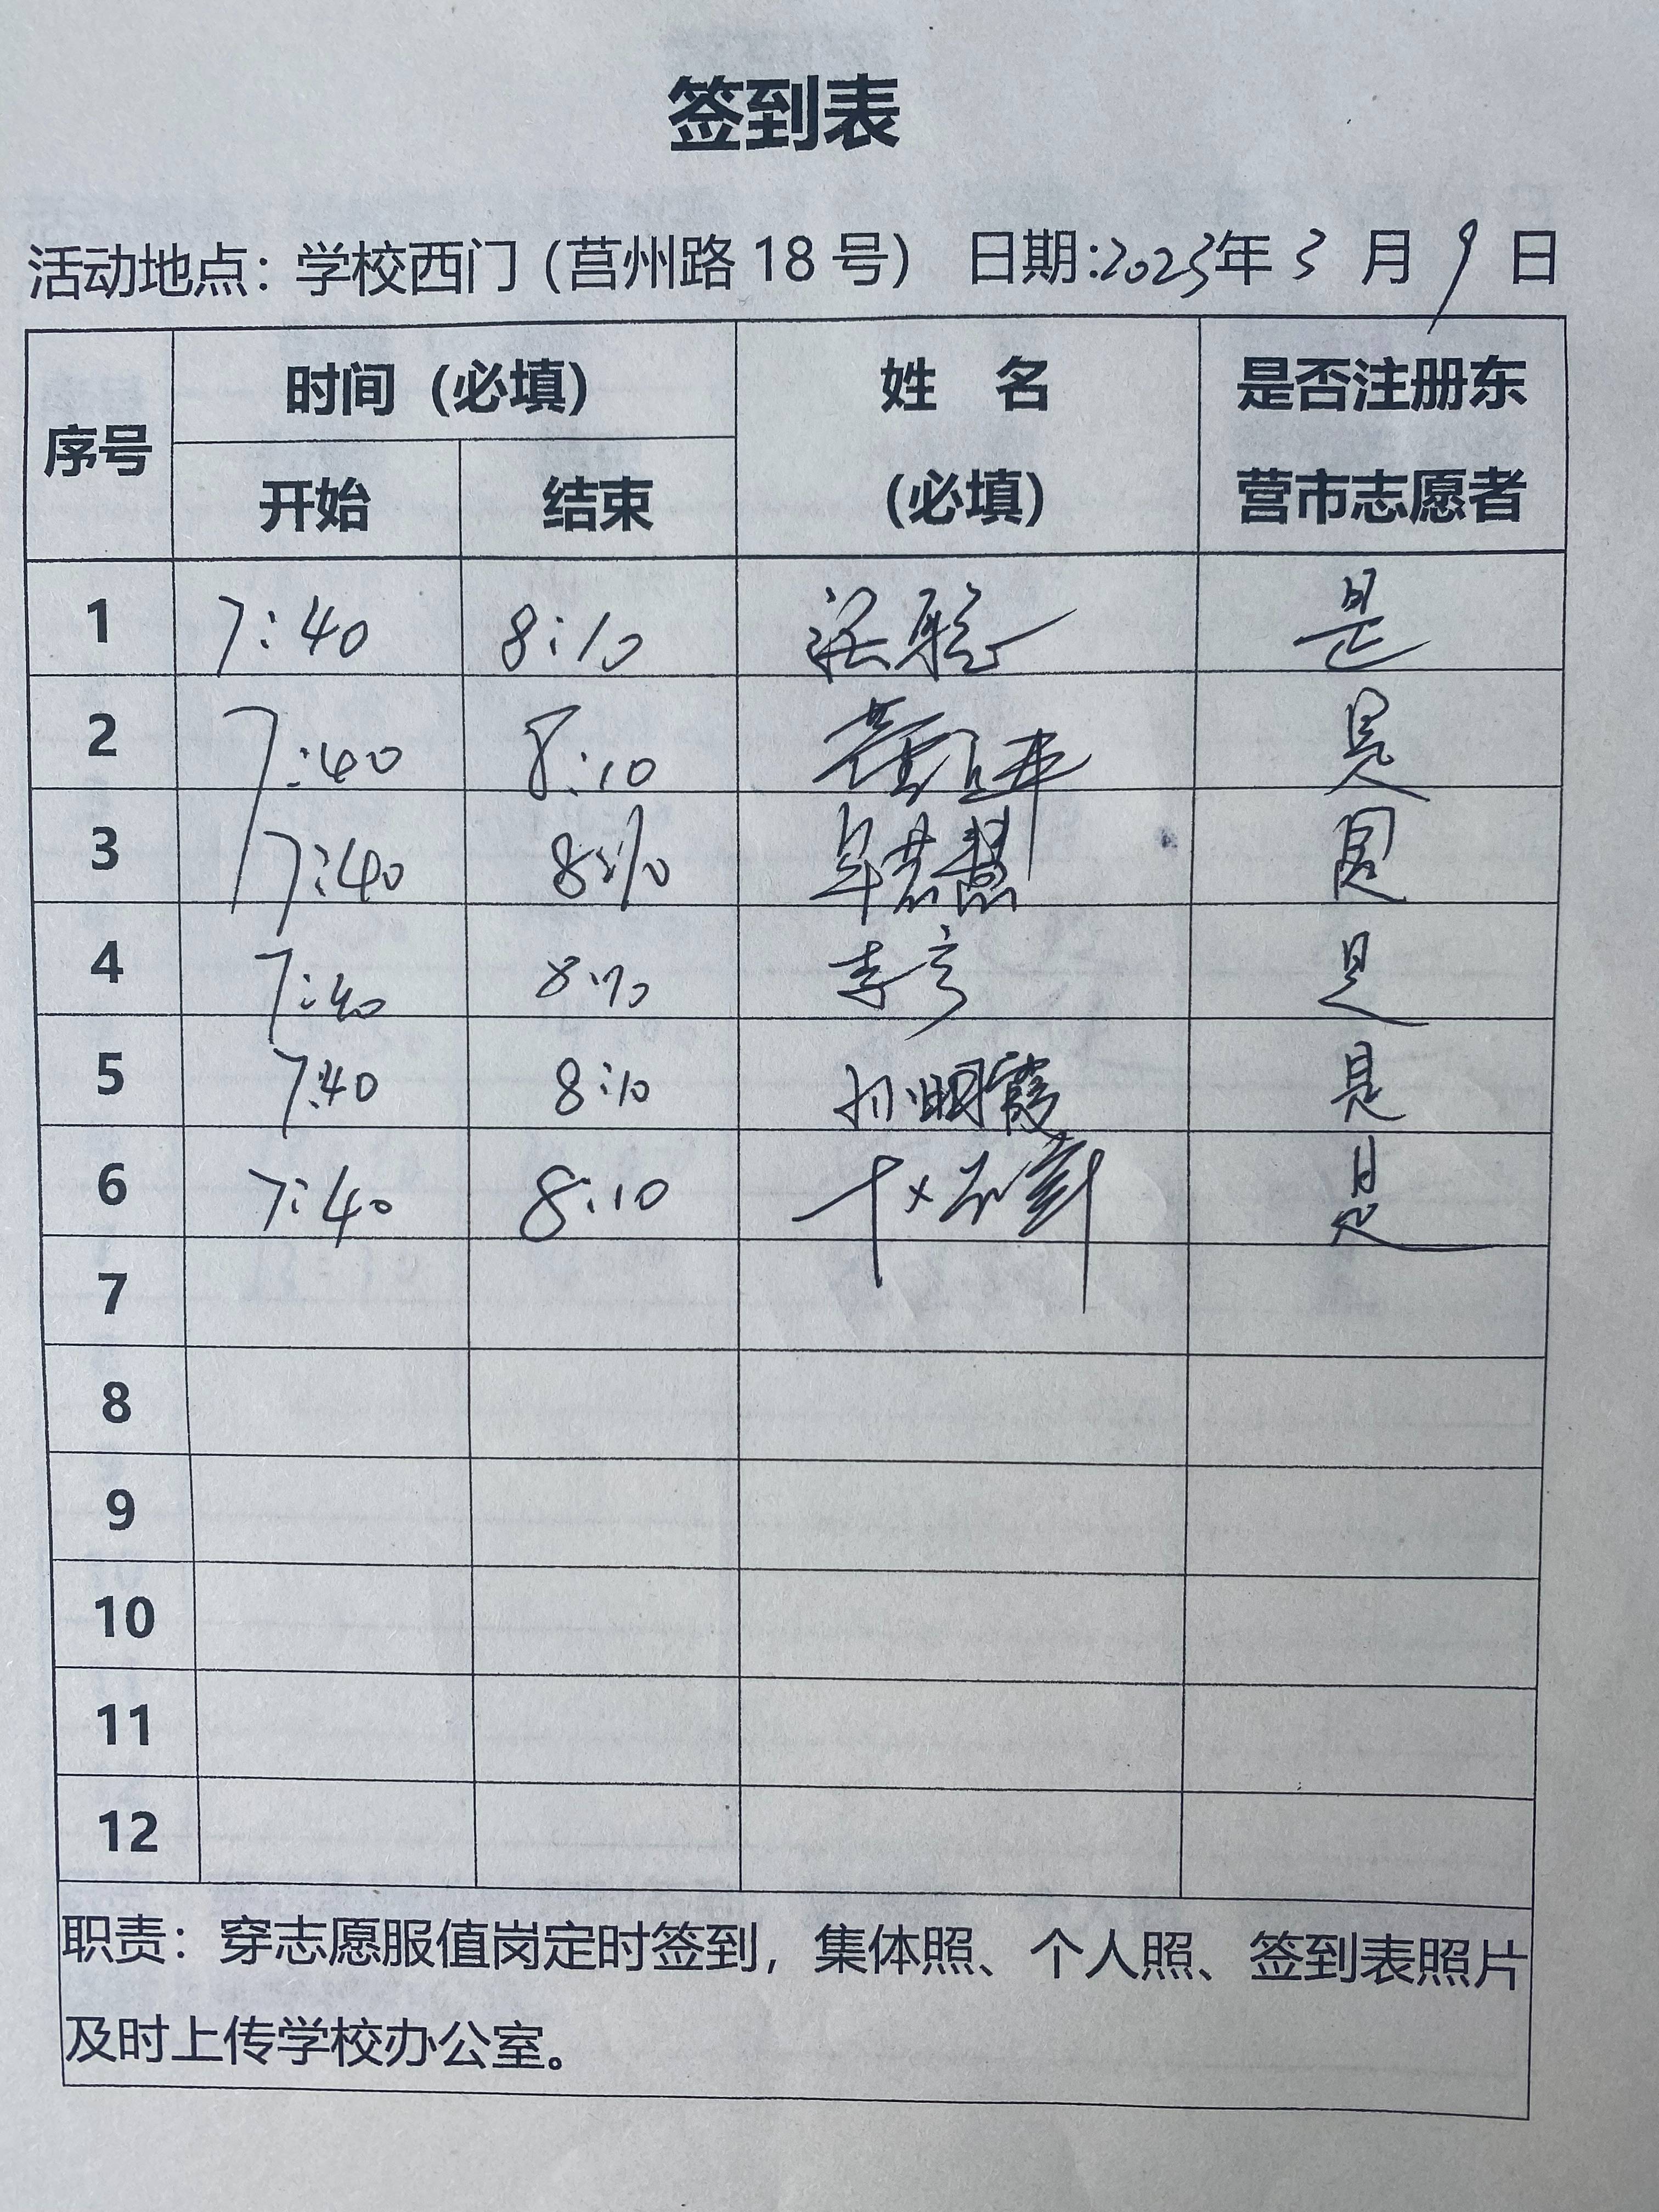 签到表
活动地点：学校西门（莒州路 18 号） 日期:2023年3月9日
序号 时间（必填） 姓 名（必填） 是否注册东营市志愿者
开始 结束
1 7:40 8:10 是
2 7:40 8:10 是
3 7:40 8:10 是
4 7:40 8:10 李 是
5 7:40 8:10 孙明霞 是
6 7:40 8:10 是
7
8
9
10
11
12
职责：穿志愿服值岗定时签到，集体照、个人照、签到表照片
及时上传学校办公室。